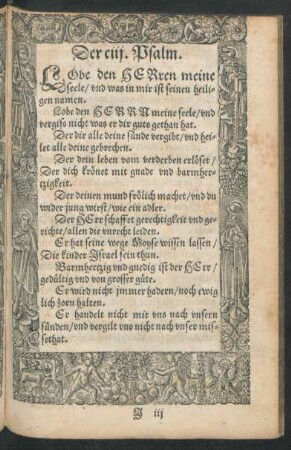 Der ciij. Psalm.
LObe den HERren meine
seele/ vnd was in mir ist seinen heili-
gen namen.
Lobe den HERRN meine seele/ vnd
vergiß nicht was er dir guts gethan hat.
Der dir alle deine sünde vergibt/ vnd hei-
let alle deine gebrechen.
Der dein leben vom verderben erlöset/
Der dich krönet mit gnade vnd barmher-
tzigkeit.
Der deinen mund frölich machet/ vnd du
wider jung wirst/ wie ein adler.
Der HErr schaffet gerechtigkeit vnd ge-
richte/ allen die vnrecht leiden.
Er hat seine wege Moyse wissen lassen/
Die kinder Israel sein thun.
Barmhertzig vnd gnedig ist der HErr/
gedültig vnd von grosser güte.
Er wird nicht jmmer hadern/ noch ewig
lich zorn halten.
Er handelt nicht mit vns nach vnsern
sünden/ vnd vergilt vns nicht nach vnser mis-
sethat.
J iij